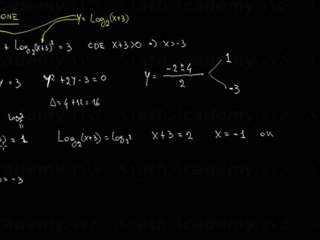 ONE y = Log₂(x+3)
+ Log₂(x+3)² = 3 CDE x+3>0 => x>-3
y = 3 y² + 2y - 3 = 0 y = -2±4 / 2 1 -3
Δ = 4 + 12 = 16
= 1 Log₂(x+3) = Log₂² x+3 = 2 x = -1 ok
= -3